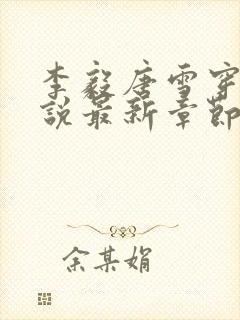 李毅唐雪穿
说最新章节
余某娟